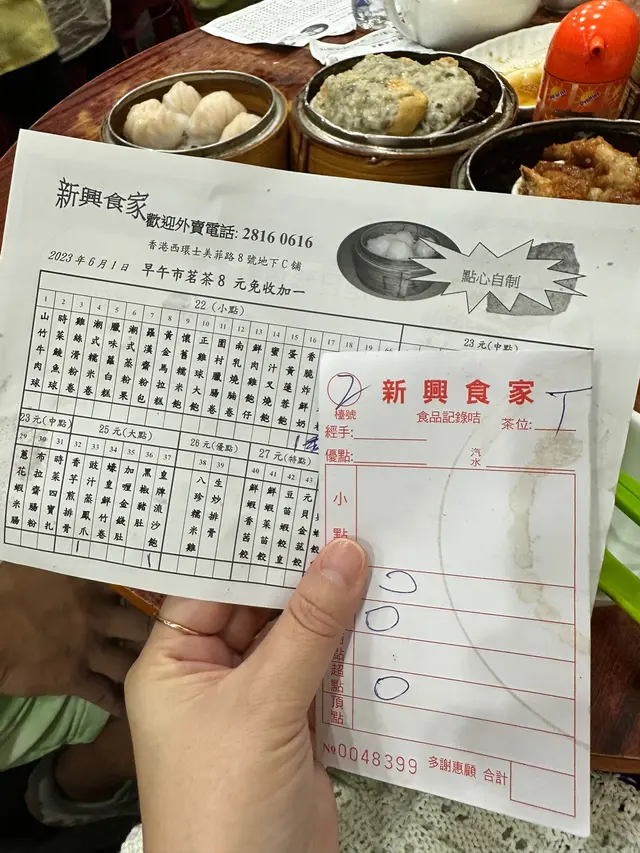 新興食家 歡迎外賣電話: 2816 0616
香港西環士美菲路 8 號地下 C 舖
點心自制
2023 年 6 月 1 日 早午市茗茶 8 元免收加一
22 (小點)
23 元(中點)
1 2 3 4 5 6 7 8 9 10 11 12 13 14 15 16 17 18 19
山竹牛肉球
時菜鯪魚球
雞絲滑粉卷
潮式糯米卷
臘味蘿白糕
潮式蒸粉果
羅漢齋粉包
黃金馬拉糕
懷舊糯米飽
正雞球大飽
圍村臘腸卷
南乳燒腩卷
鮮肉雞飽仔
蜜汁叉燒飽
蛋黃蓮蓉飽
香脆炸鮮奶
23 元(中點) 25 元(大點) 26 元(優點) 27 元(特點)
29 30 31 32 33 34 35 36 37 38 39 40 41 42 43
蔥花蝦米腸
布拉齋腸粉
時菜四寶扎
香芋煎排骨
豉汁蒸鳳爪
蠔皇鮮竹卷
咖喱金錢肚
黑椒豬肚
皇牌流沙飽
八珍糯米雞
生炒排骨
鮮蝦香茜餃
鮮蝦菜苗餃
豆苗蝦餃皇
元貝金菇餃
2
新興食家
檯號
食品記錄咭
茶位: T
經手:
優點:
汽水
小點
超點
頂點
№0048399
多謝惠顧 合計